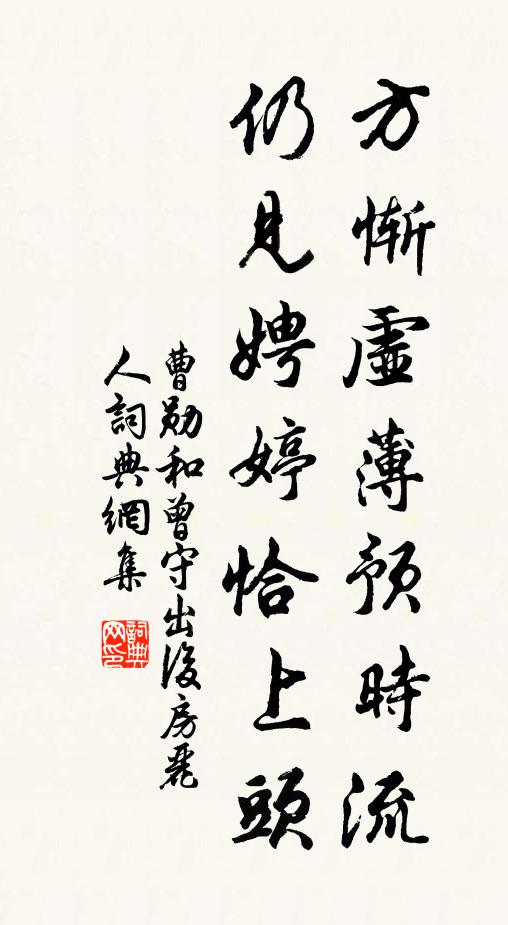 方慚虛薄預時流
仍見娉婷恰上頭
曹勛和曾守出後房麗
人詞典網集
詞典
网印